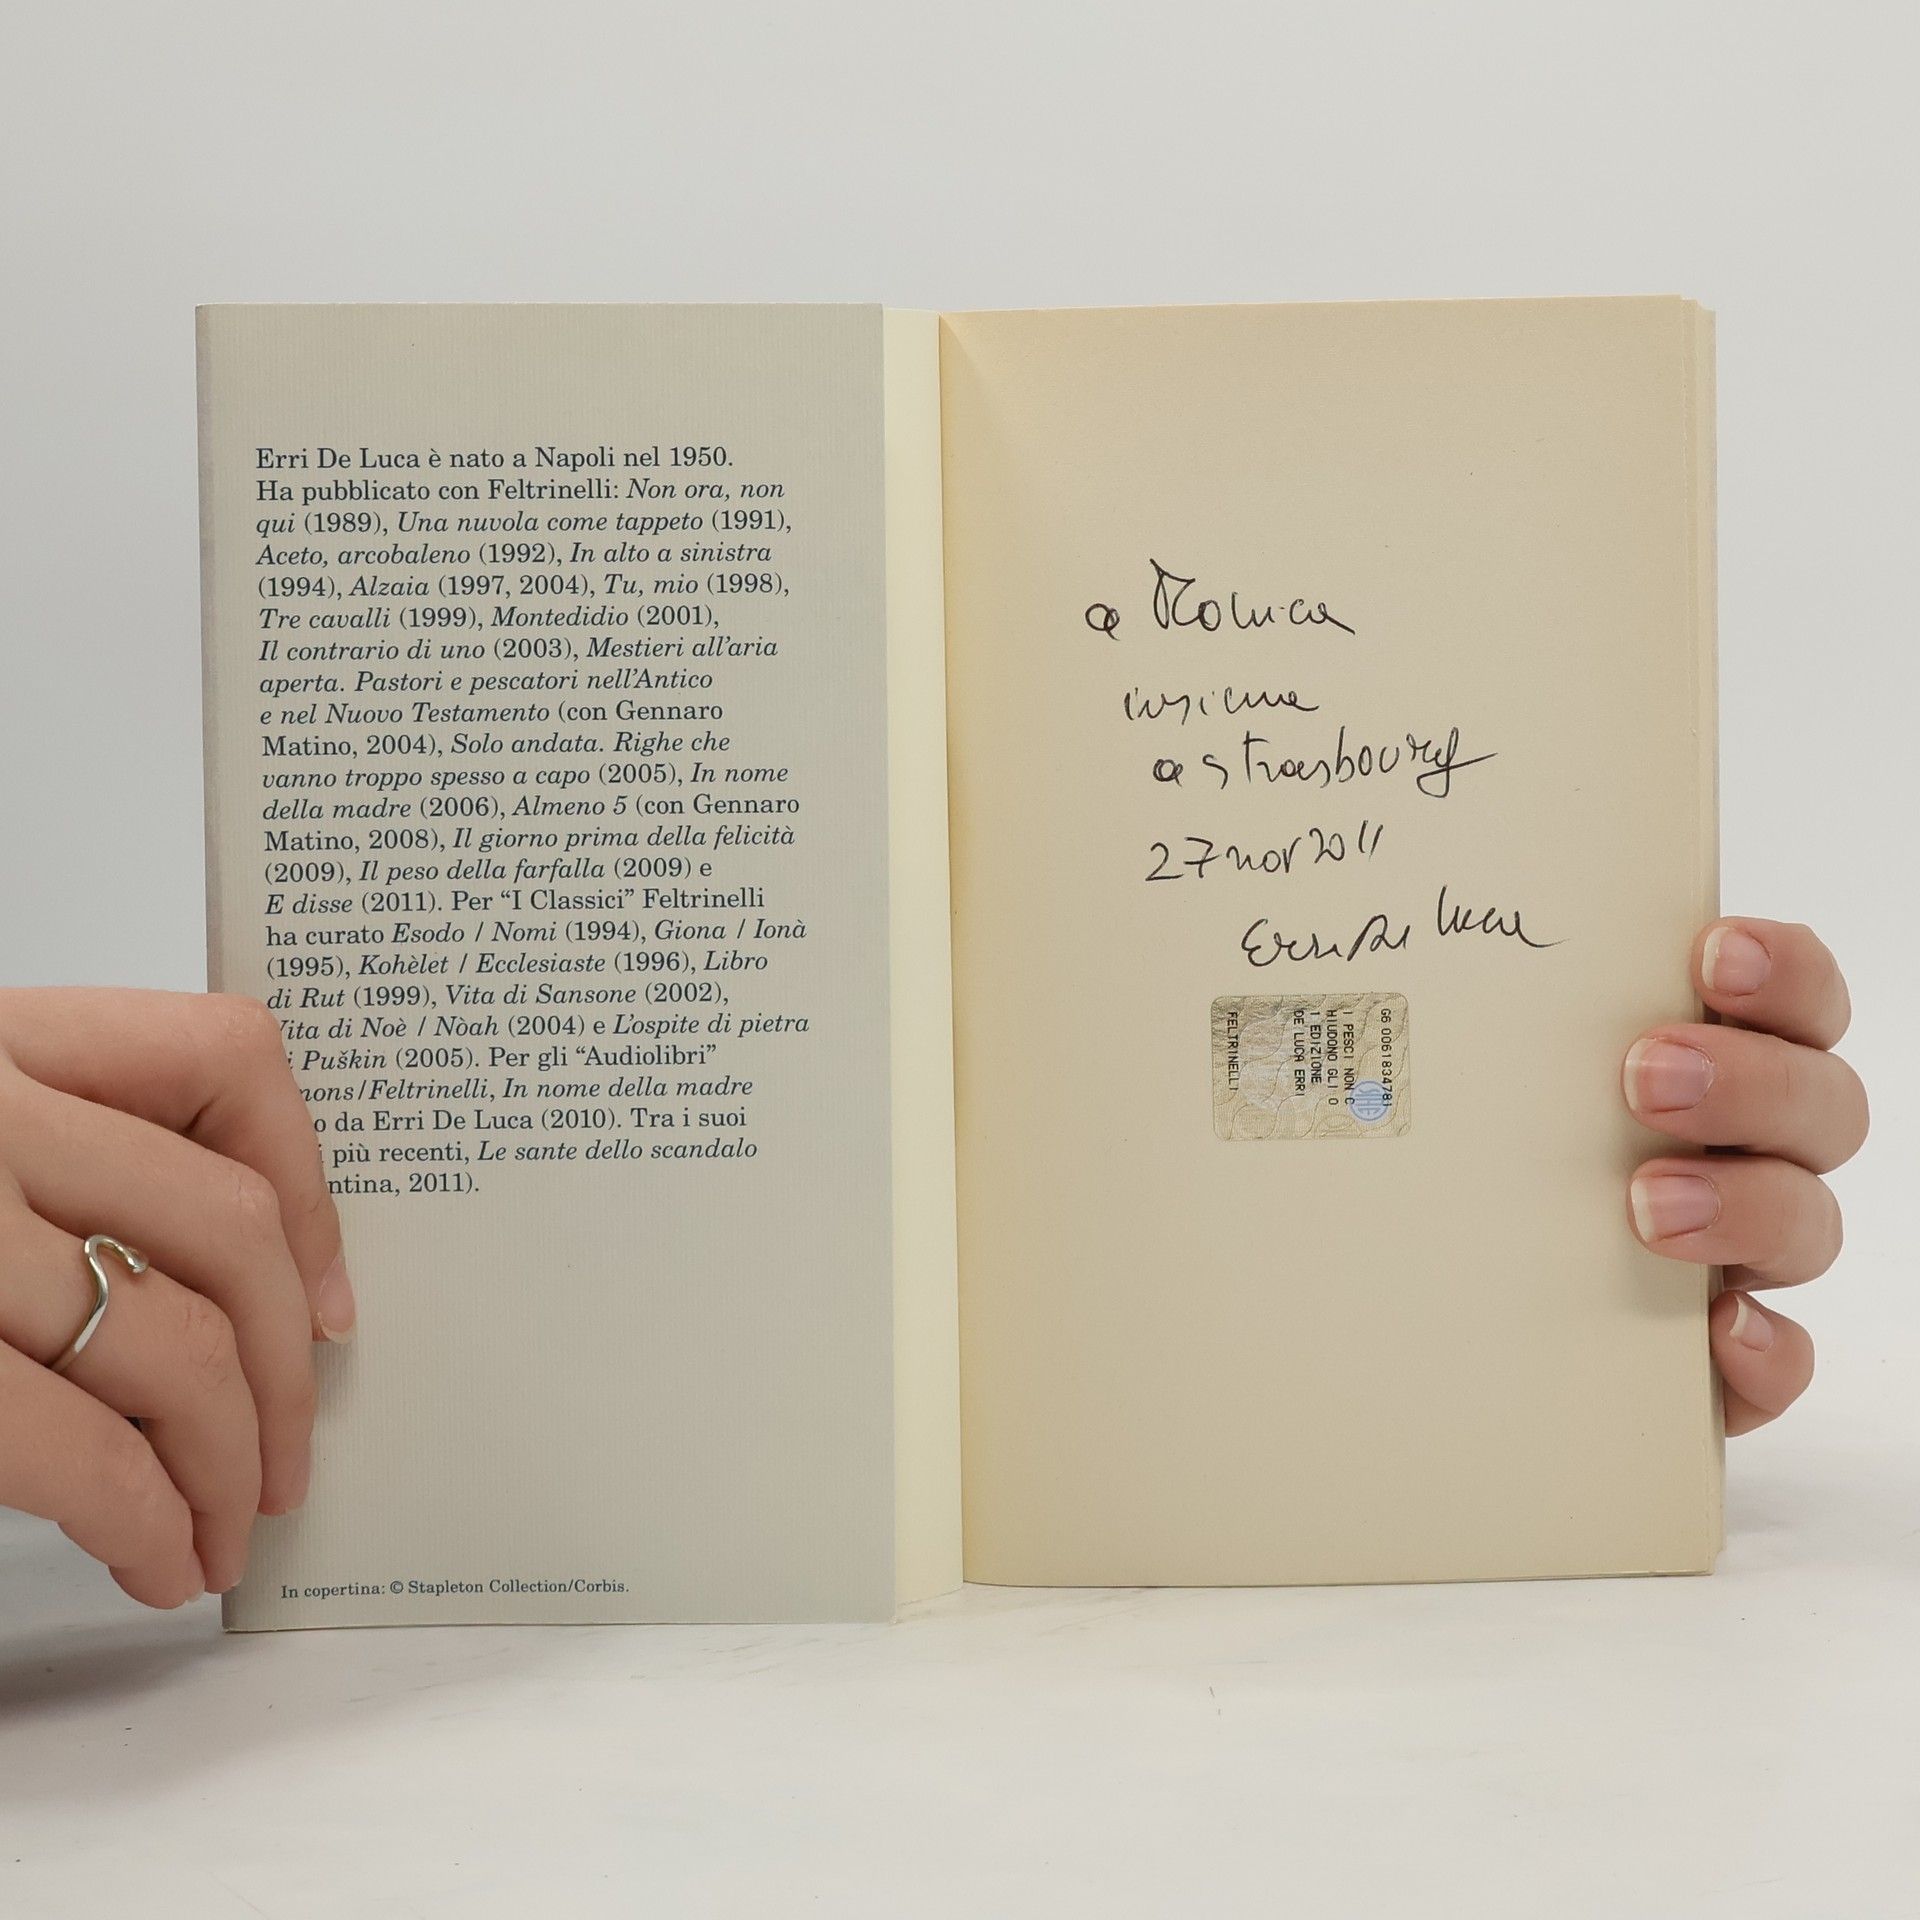 Erri De Luca è nato a Napoli nel 1950.
Ha pubblicato con Feltrinelli: Non ora, non
qui (1989), Una nuvola come tappeto (1991),
Aceto, arcobaleno (1992), In alto a sinistra
(1994), Alzaia (1997, 2004), Tu, mio (1998),
Tre cavalli (1999), Montedidio (2001),
Il contrario di uno (2003), Mestieri all'aria
aperta. Pastori e pescatori nell'Antico
e nel Nuovo Testamento (con Gennaro
Matino, 2004), Solo andata. Righe che
vanno troppo spesso a capo (2005), In nome
della madre (2006), Almeno 5 (con Gennaro
Matino, 2008), Il giorno prima della felicità
(2009), Il peso della farfalla (2009) e
E disse (2011). Per “I Classici” Feltrinelli
ha curato Esodo / Nomi (1994), Giona / Ionà
(1995), Kohèlet / Ecclesiaste (1996), Libro
di Rut (1999), Vita di Sansone (2002),
Vita di Noè / Nòah (2004) e L'ospite di pietra
i Puškin (2005). Per gli “Audiolibri”
mons/Feltrinelli, In nome della madre
o da Erri De Luca (2010). Tra i suoi
i più recenti, Le sante dello scandalo
ntina, 2011).
In copertina: © Stapleton Collection/Corbis.
a Monica
insieme
a strasbourg
27 nov 2011
Erri De Luca
G6 0061834781
SIAE
I PESCI NON C
HIUDONO GLI O
1 EDIZIONE
DE LUCA ERRI
FELTRINELLI